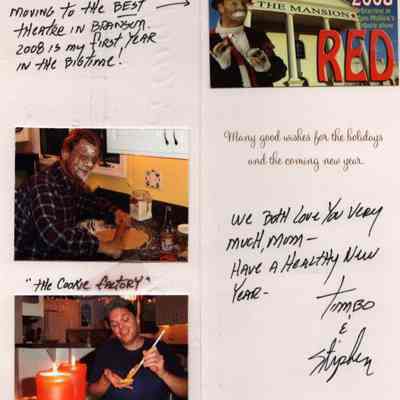 MOVING TO THE BEST
THEATRE IN BRANSON.
2008 IS MY FIRST YEAR
IN THE BIGTIME!
"THE COOKIE FACTORY"
2008
THE MANSION
RED
Many good wishes for the holidays
and the coming new year.
WE BOTH LOVE YOU VERY
MUCH, MOM —
HAVE A HEALTHY NEW
YEAR —
TIMBO
&
Stiphen